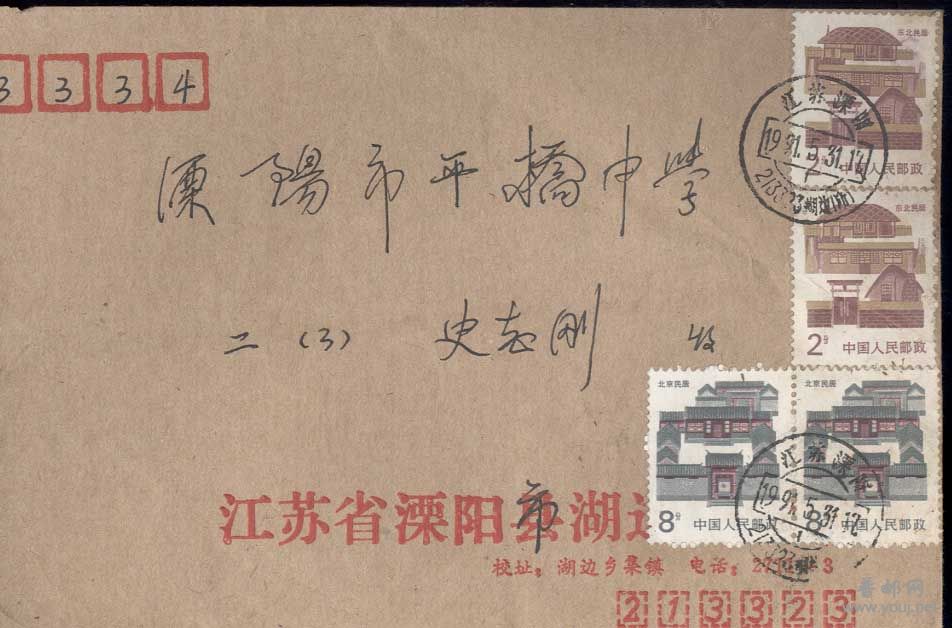 3 3 3 4
溧阳市平橋中学
二(3) 史志刚 收
东北民居
2分 中国人民邮政
江苏溧阳
1991.5.31.12
213323湖边
东北民居
2分 中国人民邮政
北京民居
8分 中国人民邮政
北京民居
8分 中国人民邮政
江苏溧阳
1991.5.31.12
江苏省溧阳县湖边
市
校址：湖边乡集镇 电话：
213323
晋邮网
www.youj.net